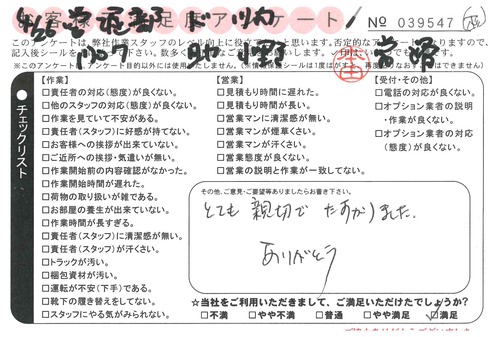 お客様満足度アンケート
No 039547
このアンケートは、弊社作業スタッフのレベル向上に役立て
【作業】
□責任者の対応(態度)が良くない。
□他のスタッフの対応(態度)が良くない。
□作業を見ていて不安がある。
□責任者(スタッフ)に好感が持てない。
□お客様への挨拶が出来ていない。
□ご近所への挨拶・気遣いが無い。
□作業開始前の内容確認がなかった。
□作業開始時間が遅れた。
□荷物の取り扱いが雑である。
□お部屋の養生が出来ていない。
□作業時間が長すぎる。
□責任者(スタッフ)に清潔感が無い。
□責任者(スタッフ)が汗くさい。
□トラックが汚い。
□梱包資材が汚い。
□運転が不安(下手)である。
□靴下の履き替えをしてない。
□スタッフにやる気がみられない。
チェックリスト
【営業】
□見積もり時間に遅れた。
□見積もり時間が長い。
□営業マンに清潔感が無い。
□営業マンが煙草くさい。
□営業マンが汗くさい。
□営業態度が良くない。
□営業の説明と作業が一致してない。
【受付・その他】
□電話の対応が良くない。
□オプション業者の説明
・作業が良くない。
□オプション業者の対応
(態度)が良くない。
その他、ご意見・ご要望等ありましたらお書き下さい。
とても 親切で たすかりました。
ありがとう
☆当社をご利用いただきまして、ご満足いただけたでしょうか?
□不満 □やや不満 □普通 □やや満足 ☑満足